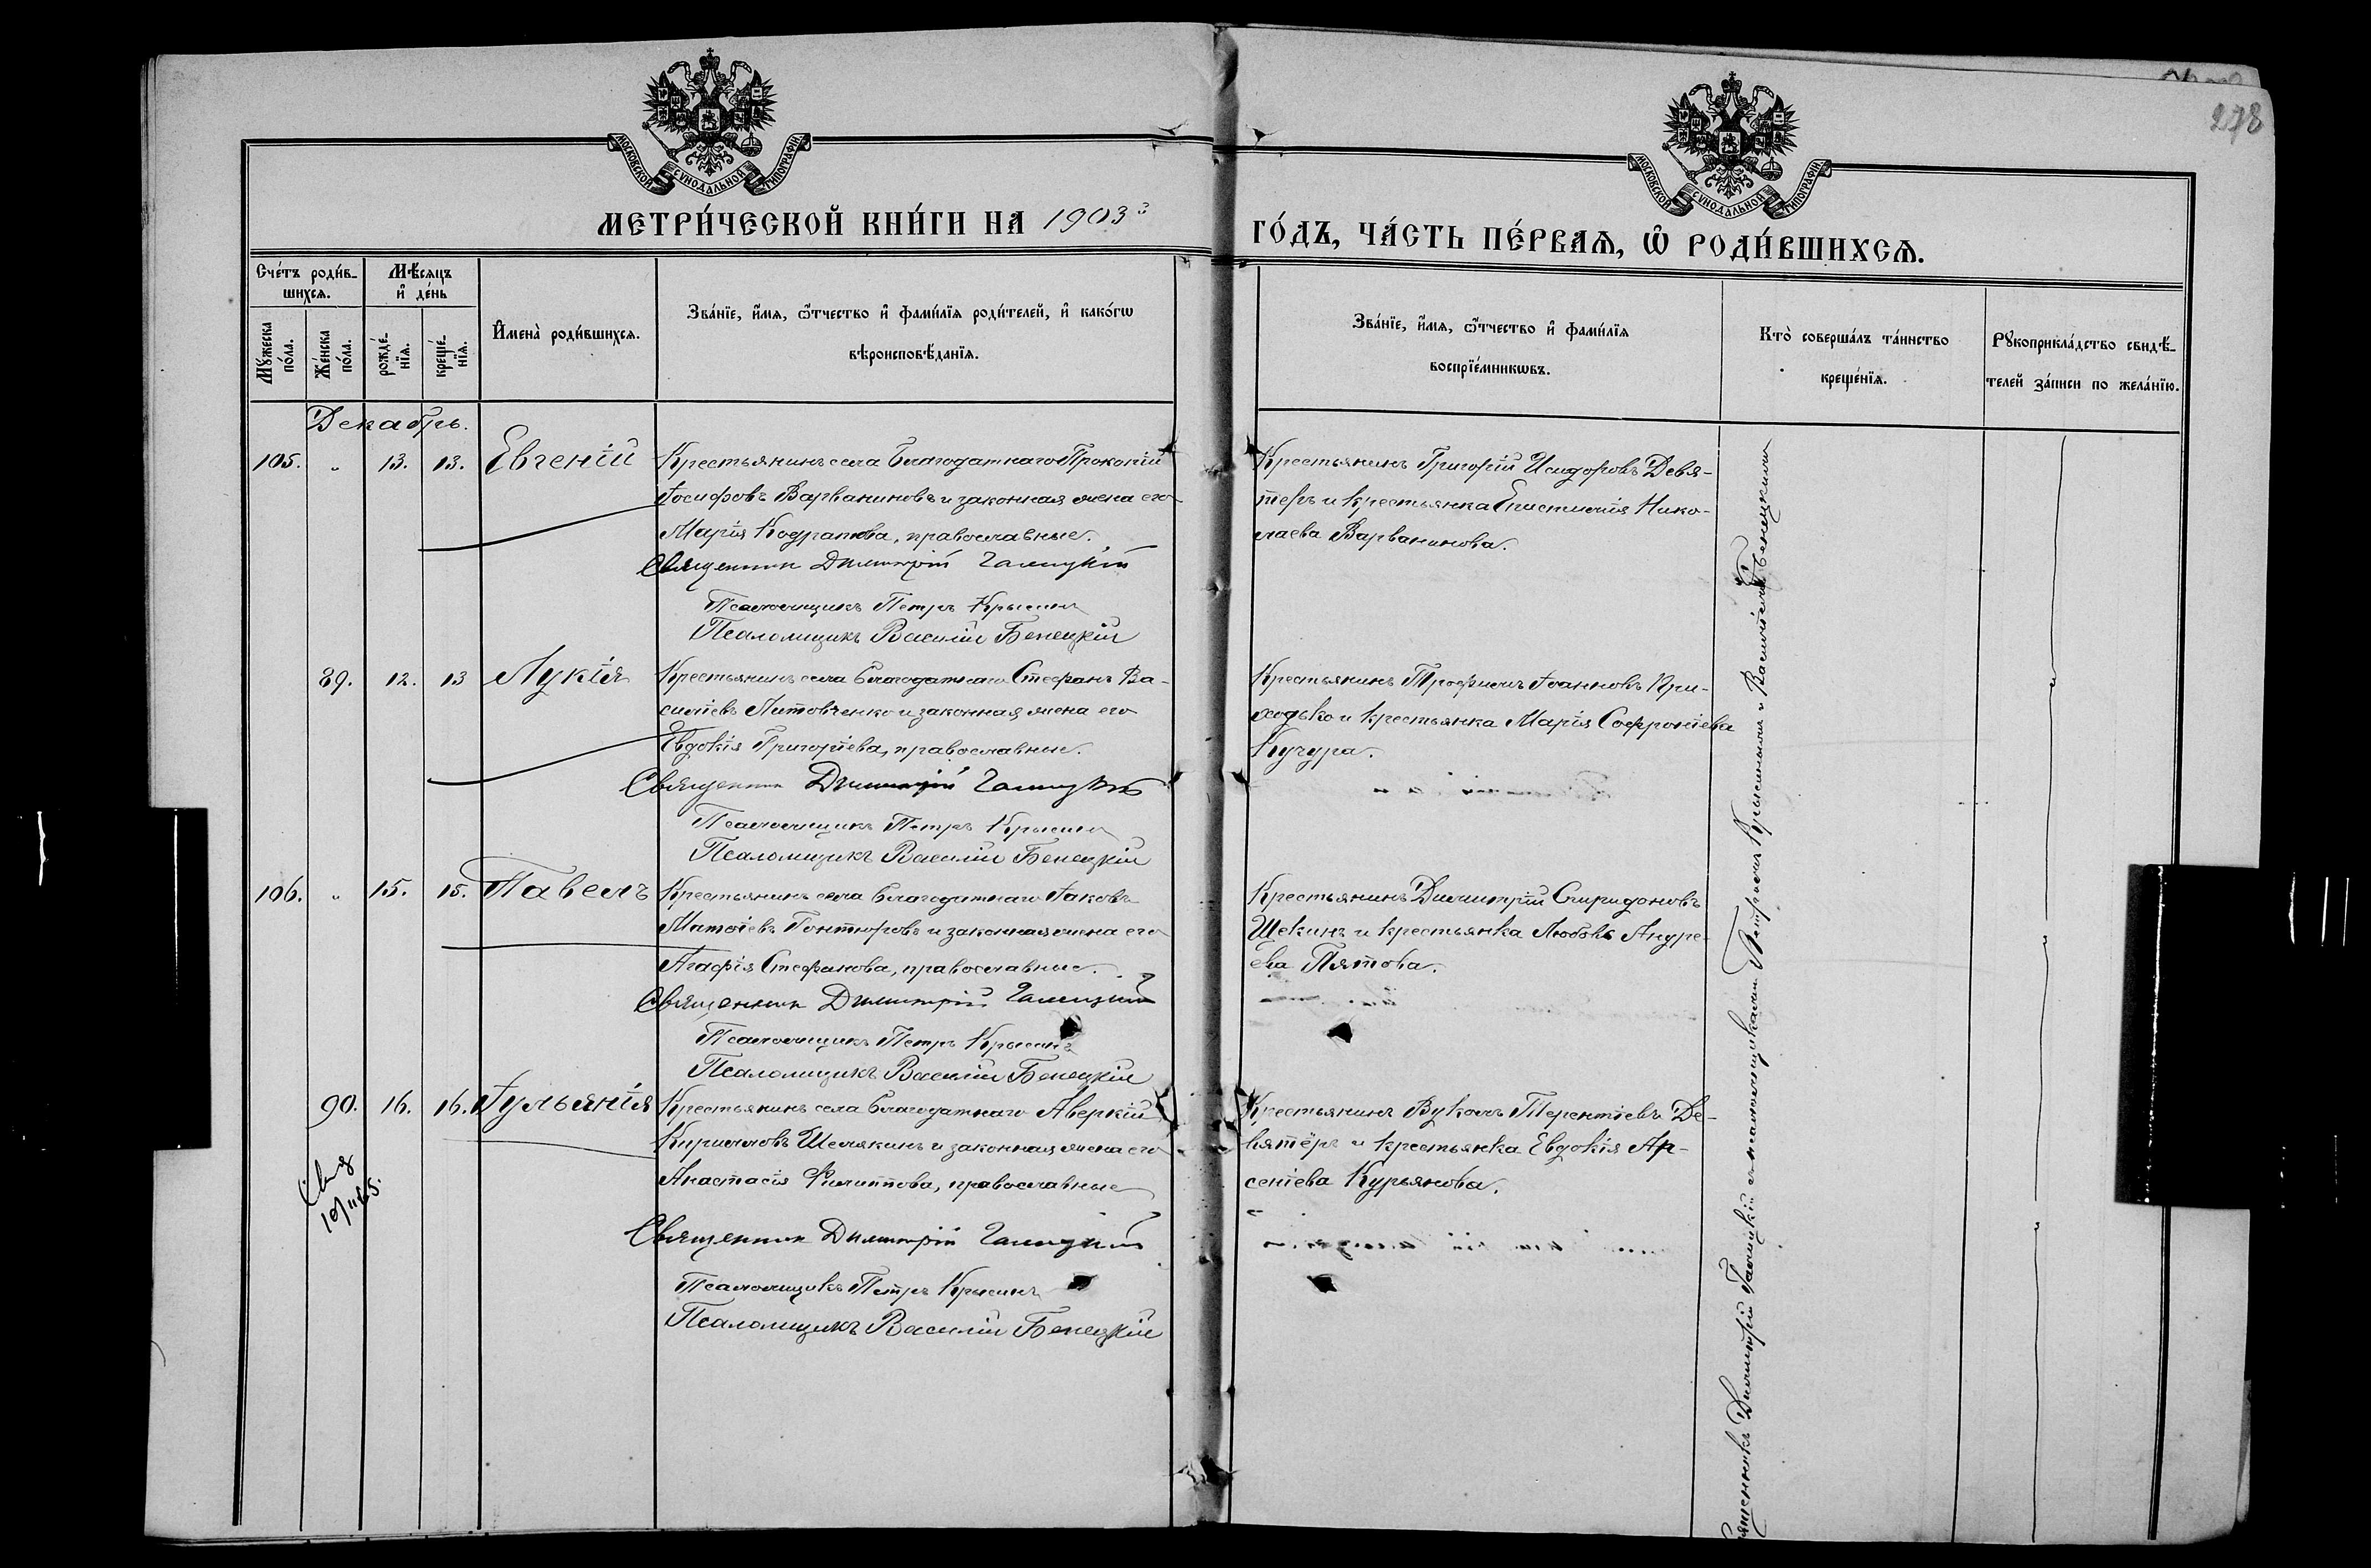 278
МОСКОВСКОЙ СѴНОДАЛЬНОЙ ТИПОГРАФІИ.
МОСКОВСКОЙ СѴНОДАЛЬНОЙ ТИПОГРАФІИ.
МЕТРИ́ЧЕСКОЙ КНИ́ГИ НА 1903й ГО́ДЪ, ЧА́СТЬ ПЕ́РВАѦ, Ѡ РОДИ́ВШИХСѦ.
Сче́тъ роди́в-
шихсѧ.
Мꙋ́жеска
по́ла.
Же́нска
по́ла.
Мѣ́сѧцъ
и҆ де́нь
рожде́-
нїѧ.
креще́-
нїѧ.
И҆мена̀ роди́вшихсѧ.
Зва́нїе, и҆́мѧ, ѻ҆́тчество и҆ фами́лїѧ роди́телей, и҆ како́гѡ
вѣроисповѣ́данїѧ.
Зва́нїе, и҆́мѧ, ѻ҆́тчество и҆ фами́лїѧ
воспрїе́мникѡвъ.
Кто̀ соверша́лъ та́инство
креще́нїѧ.
Рꙋкоприкла́дство свидѣ́-
телей за́писи по жела́нїю.
Декабрь.
105. " 13. 13. Евгеній
Крестьянинъ села Благодатнаго Прокопій
Іосифовъ Варваниновъ и законная жена его
Марія Кодратова, православные.
Священник Димитрій Галицкій
Псаломщикъ Петръ Крысинъ
Псаломщикъ Василій Бенецкій
Крестьянинъ Григорій Исидоровъ Девя-
теръ и крестьянка Епистимія Нико-
лаева Варванинова.
89. 12. 13 Лукія
Крестьянинъ села Благодатнаго Стефанъ Ва-
силіевъ Литовченко и законная жена его
Евдокія Григоріева, православные.
Священник Димитрій Галицкій
Псаломщикъ Петръ Крысинъ
Псаломщикъ Василій Бенецкій
Крестьянинъ Трофимъ Іоанновъ При-
ходько и крестьянка Марія Софроніева
Кучура.
106. " 15. 15. Павелъ
Крестьянинъ села Благодатнаго Іаковъ
Матѳіевъ Гонтюровъ и законная жена его
Агафія Стефанова, православные.
Священник Димитрій Галицкій
Псаломщикъ Петръ Крысинъ
Псаломщикъ Василій Бенецкій
Крестьянинъ Димитрій Спиридоновъ
Щекинъ и крестьянка Любовь Андре-
ева Пятова.
90. 16. 16. Іульянія
Крестьянинъ села Благодатнаго Аверкій
Кирилловъ Шелякинъ и законная жена его
Анастасія Филиппова, православные
Священник Димитрій Галицкій
Псаломщикъ Петръ Крысинъ
Псаломщикъ Василій Бенецкій
Крестьянинъ Вуколъ Терентіевъ Де-
вятёръ и крестьянка Евдокія Ар-
сеніева Курьянова.
Священникъ Димитрій Галицкій съ псаломщиками Петромъ Крысинымъ и Василіемъ Бенецкимъ